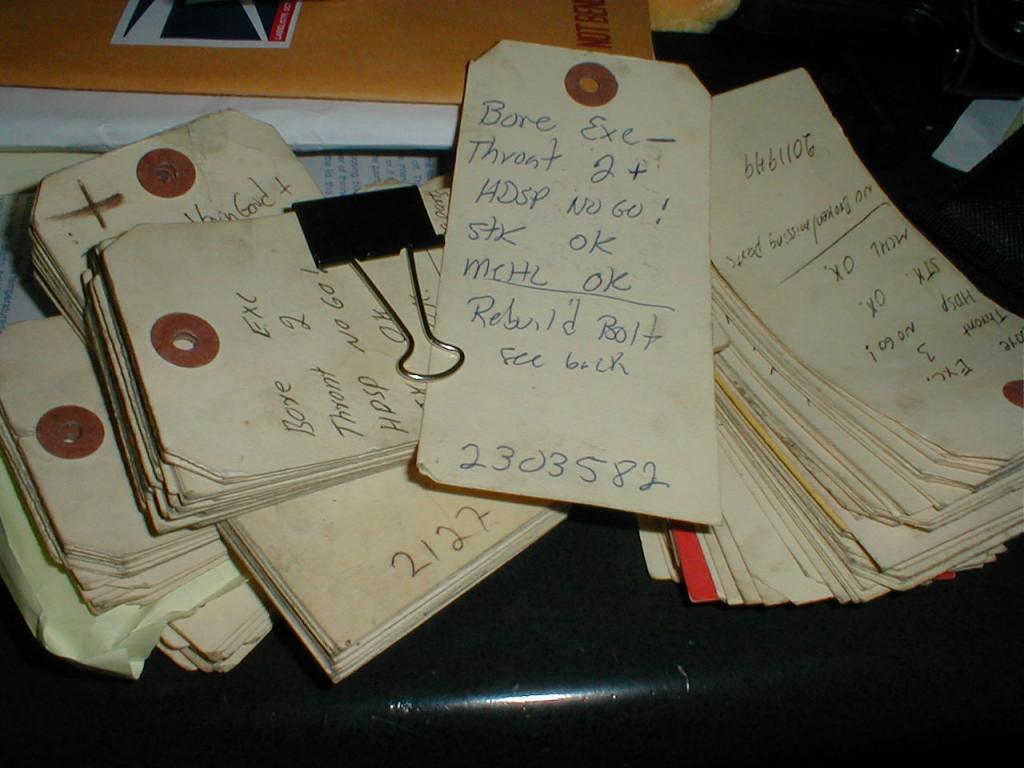 NOT BEND
Bore Exc —
Throat 2 +
HDSP NO GO!
STK OK
MCHL OK
Rebuild Bolt
see back
2303582
Bore Exc
Throat 2
HDSP NO GO!
OK
+
2127
2011949
NO Broken/missing parts
MCHL OK.
STK. OK.
HDSP NO GO!
Throat 3
Exc.